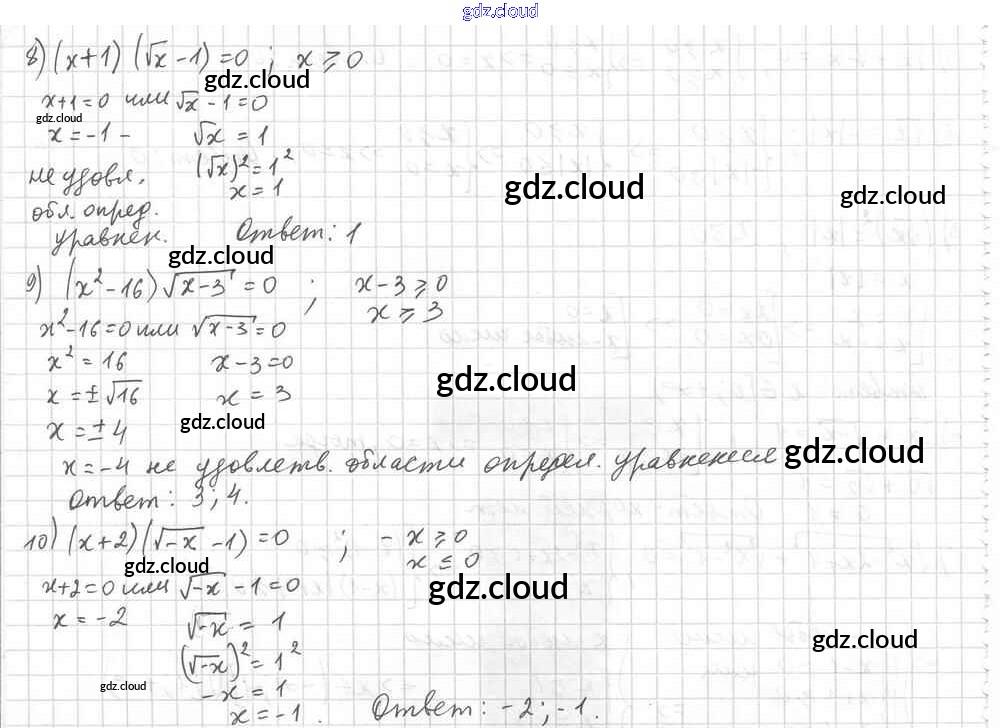 gdz.cloud
8) (x+1) (√x -1) =0 ; x ⩾ 0
gdz.cloud
x+1=0 или √x -1=0
gdz.cloud
x = -1 - √x = 1
не удовл. (√x)² = 1²
gdz.cloud
gdz.cloud
x = 1
обл. опред.
уравнен. Ответ: 1
gdz.cloud
9) (x²-16) √x-3 = 0 ; x-3 ⩾ 0
x ⩾ 3
x²-16=0 или √x-3 = 0
x² = 16 x-3=0
gdz.cloud
x = ± √16 x = 3
gdz.cloud
x = ± 4
x = -4 не удовлетв. области определ. уравнения
gdz.cloud
Ответ: 3; 4.
10) (x+2) (√-x -1) =0 ; -x ⩾ 0
x ⩽ 0
gdz.cloud
x+2=0 или √-x -1=0
gdz.cloud
x = -2 √-x = 1
gdz.cloud
(√-x)² = 1²
gdz.cloud
-x = 1
x = -1. Ответ: -2; -1.